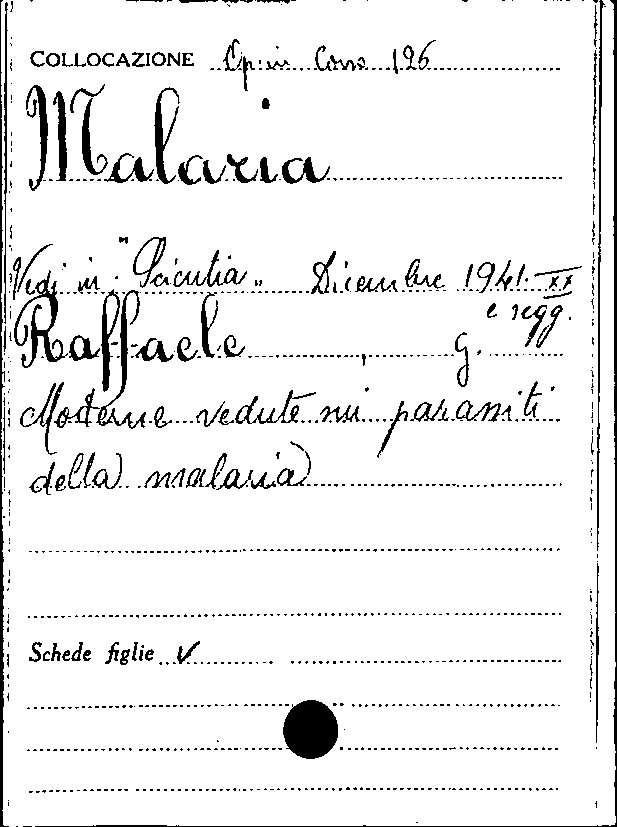 COLLOCAZIONE Op. in Cons 196
Malaria
Vedi in: "Scientia" Dicembre 1941-XX
e segg.
Raffaele, G.
Moderne vedute sui parassiti
della malaria
Schede figlie V